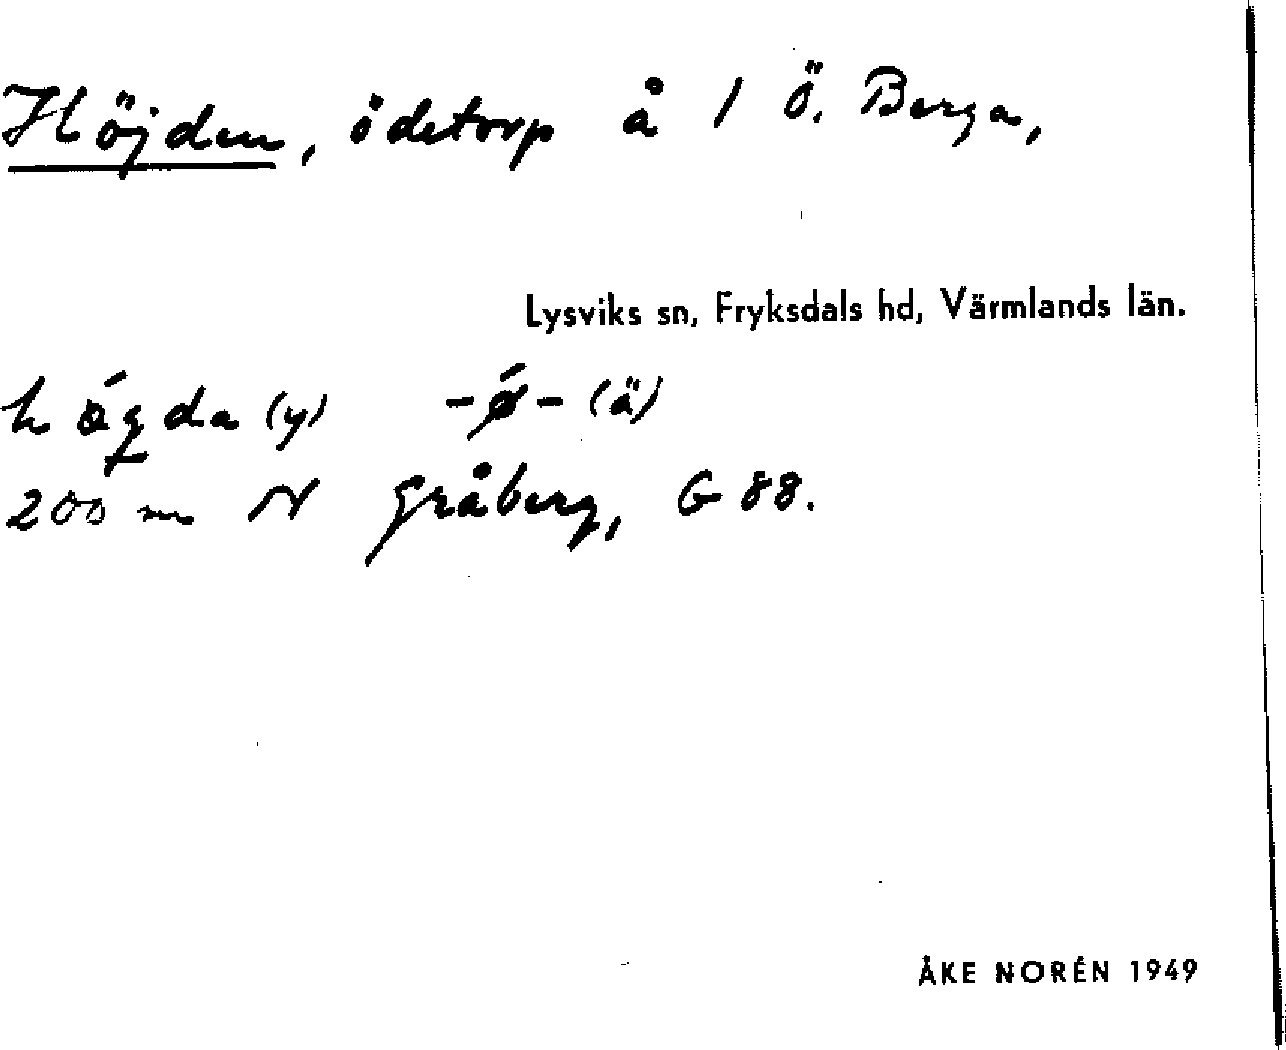 Höjden, ödetorp å 1 Ö. Berga,
Lysviks sn, Fryksdals hd, Värmlands län.
-ǿ- (ä)
200 m N Gråberg, G 88.
ÅKE NORÉN 1949